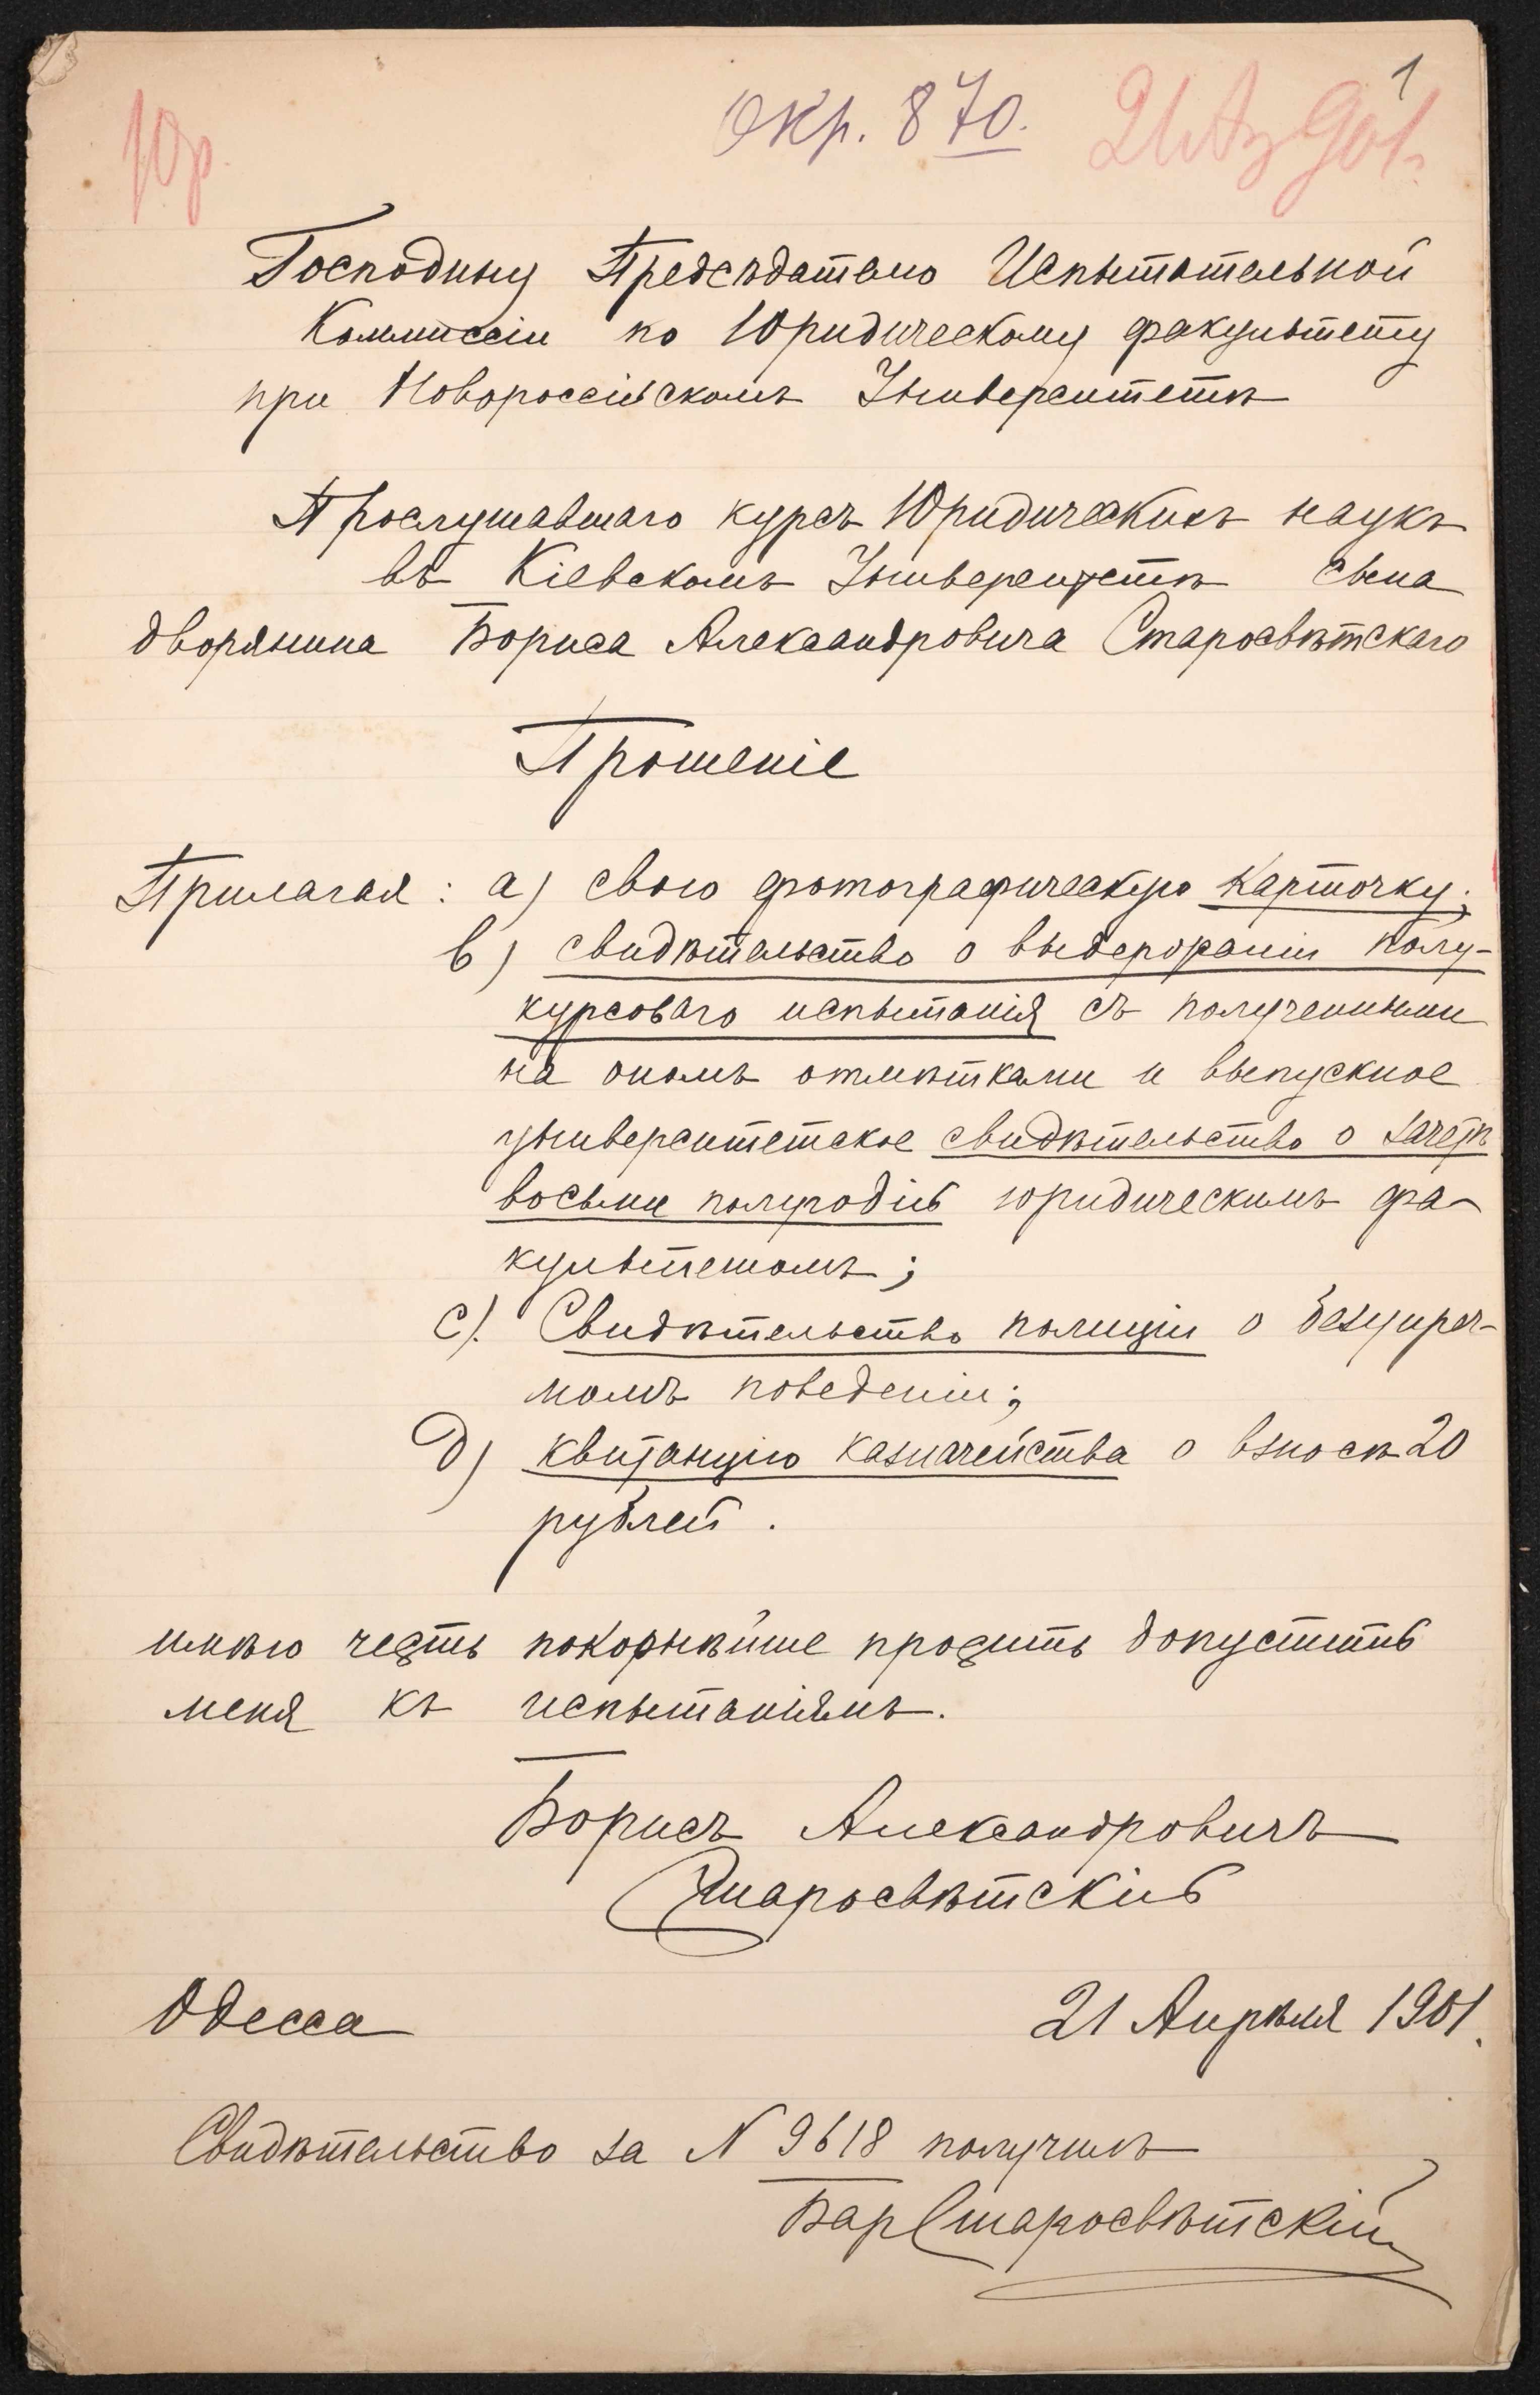 1
Юр.
Окр. 870.
21 Ап 901.
Господину Предсѣдателю Испытательной
Коммиссіи по Юридическому факультету
при Новороссійскомъ Университетѣ
Прослушавшаго курсъ Юридическихъ наукъ
въ Кіевскомъ Университетѣ сына
дворянина Бориса Александровича Старосвѣтскаго
Прошеніе
Прилагая: а) свою фотографическую карточку;
b) свидѣтельство о выдержаніи полу-
курсоваго испытанія съ полученными
на ономъ отмѣтками и выпускное
университетское свидѣтельство о зачетѣ
восьми полугодій юридическимъ фа-
культетомъ;
c). Свидѣтельство полиціи о безупреч-
номъ поведеніи;
д) квитанцію казначейства о взносѣ 20
рублей.
имѣю честь покорнѣйше просить допустить
меня къ испытаніямъ.
Борисъ Александровичъ
Старосвѣтскій
Одесса
21 Апрѣля 1901.
Свидѣтельство за N 9618 получилъ
Старосвѣтскій